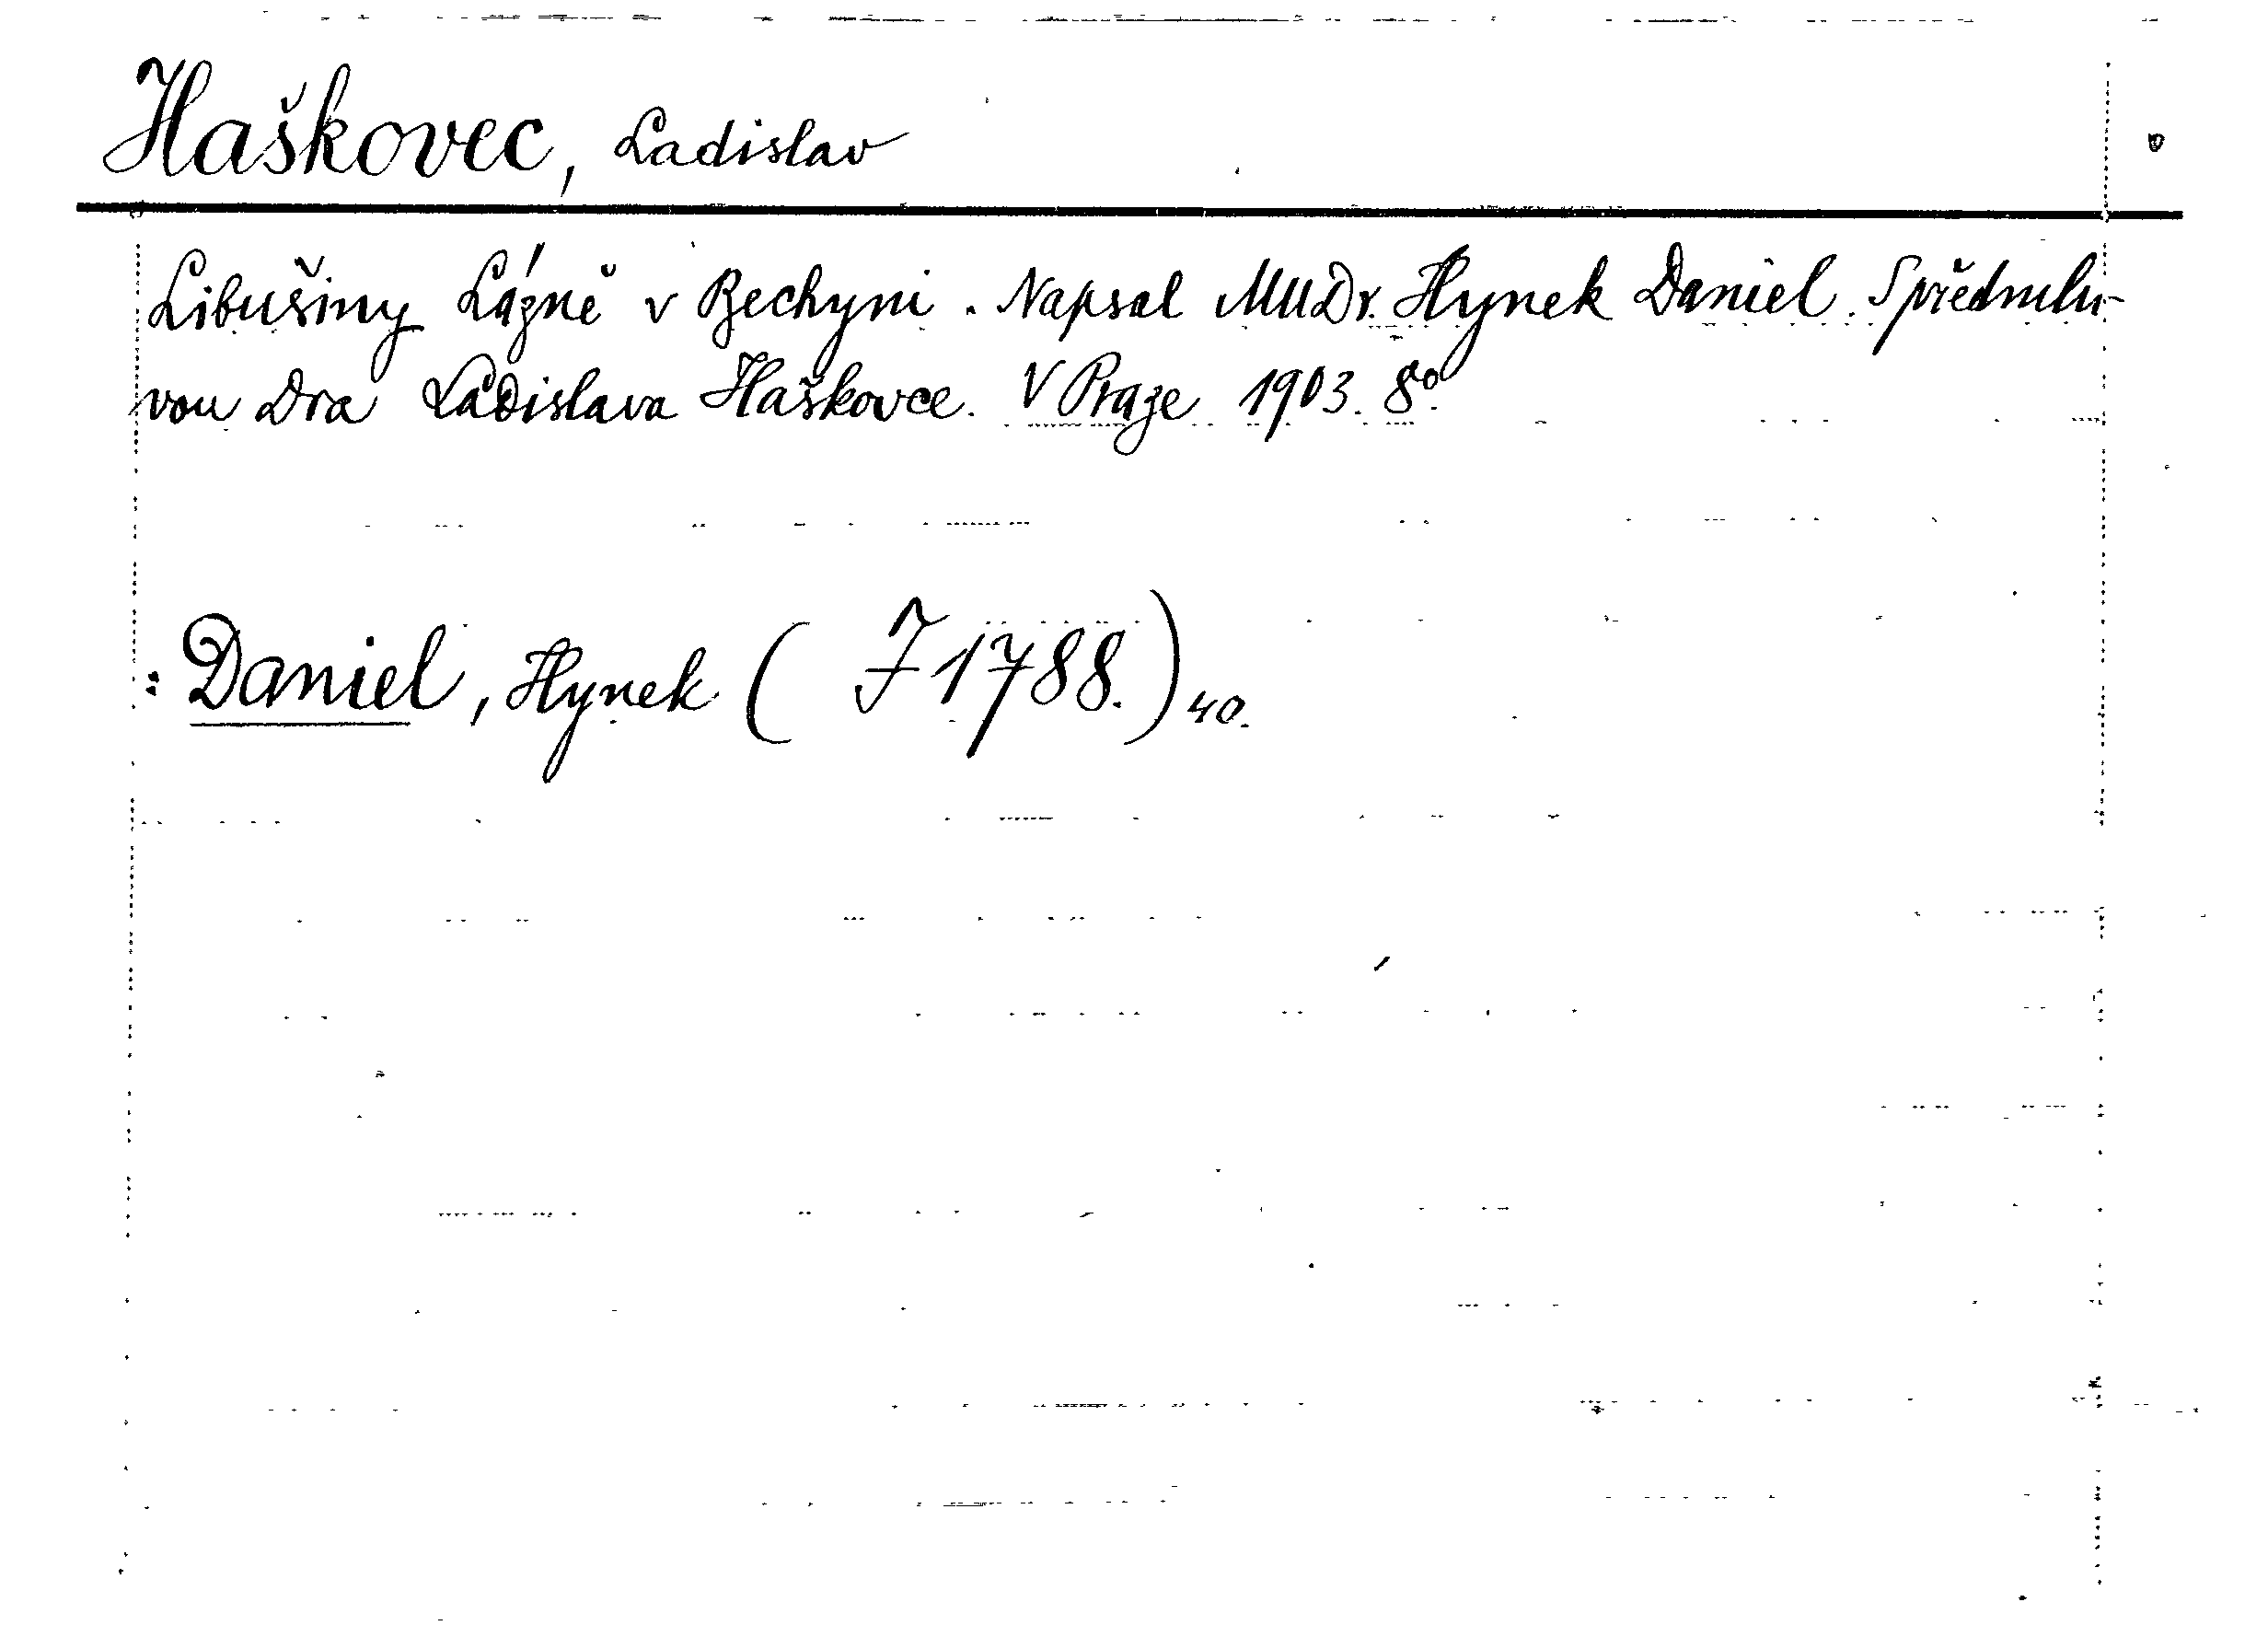 Haškovec, Ladislav
Libušiny Lázně v Bechyni. Napsal MUDr. Hynek Daniel. S předmlu-
vou Dra Ladislava Haškovce. V Praze 1903. 8º.
: Daniel, Hynek ( J 1788. ) 40.